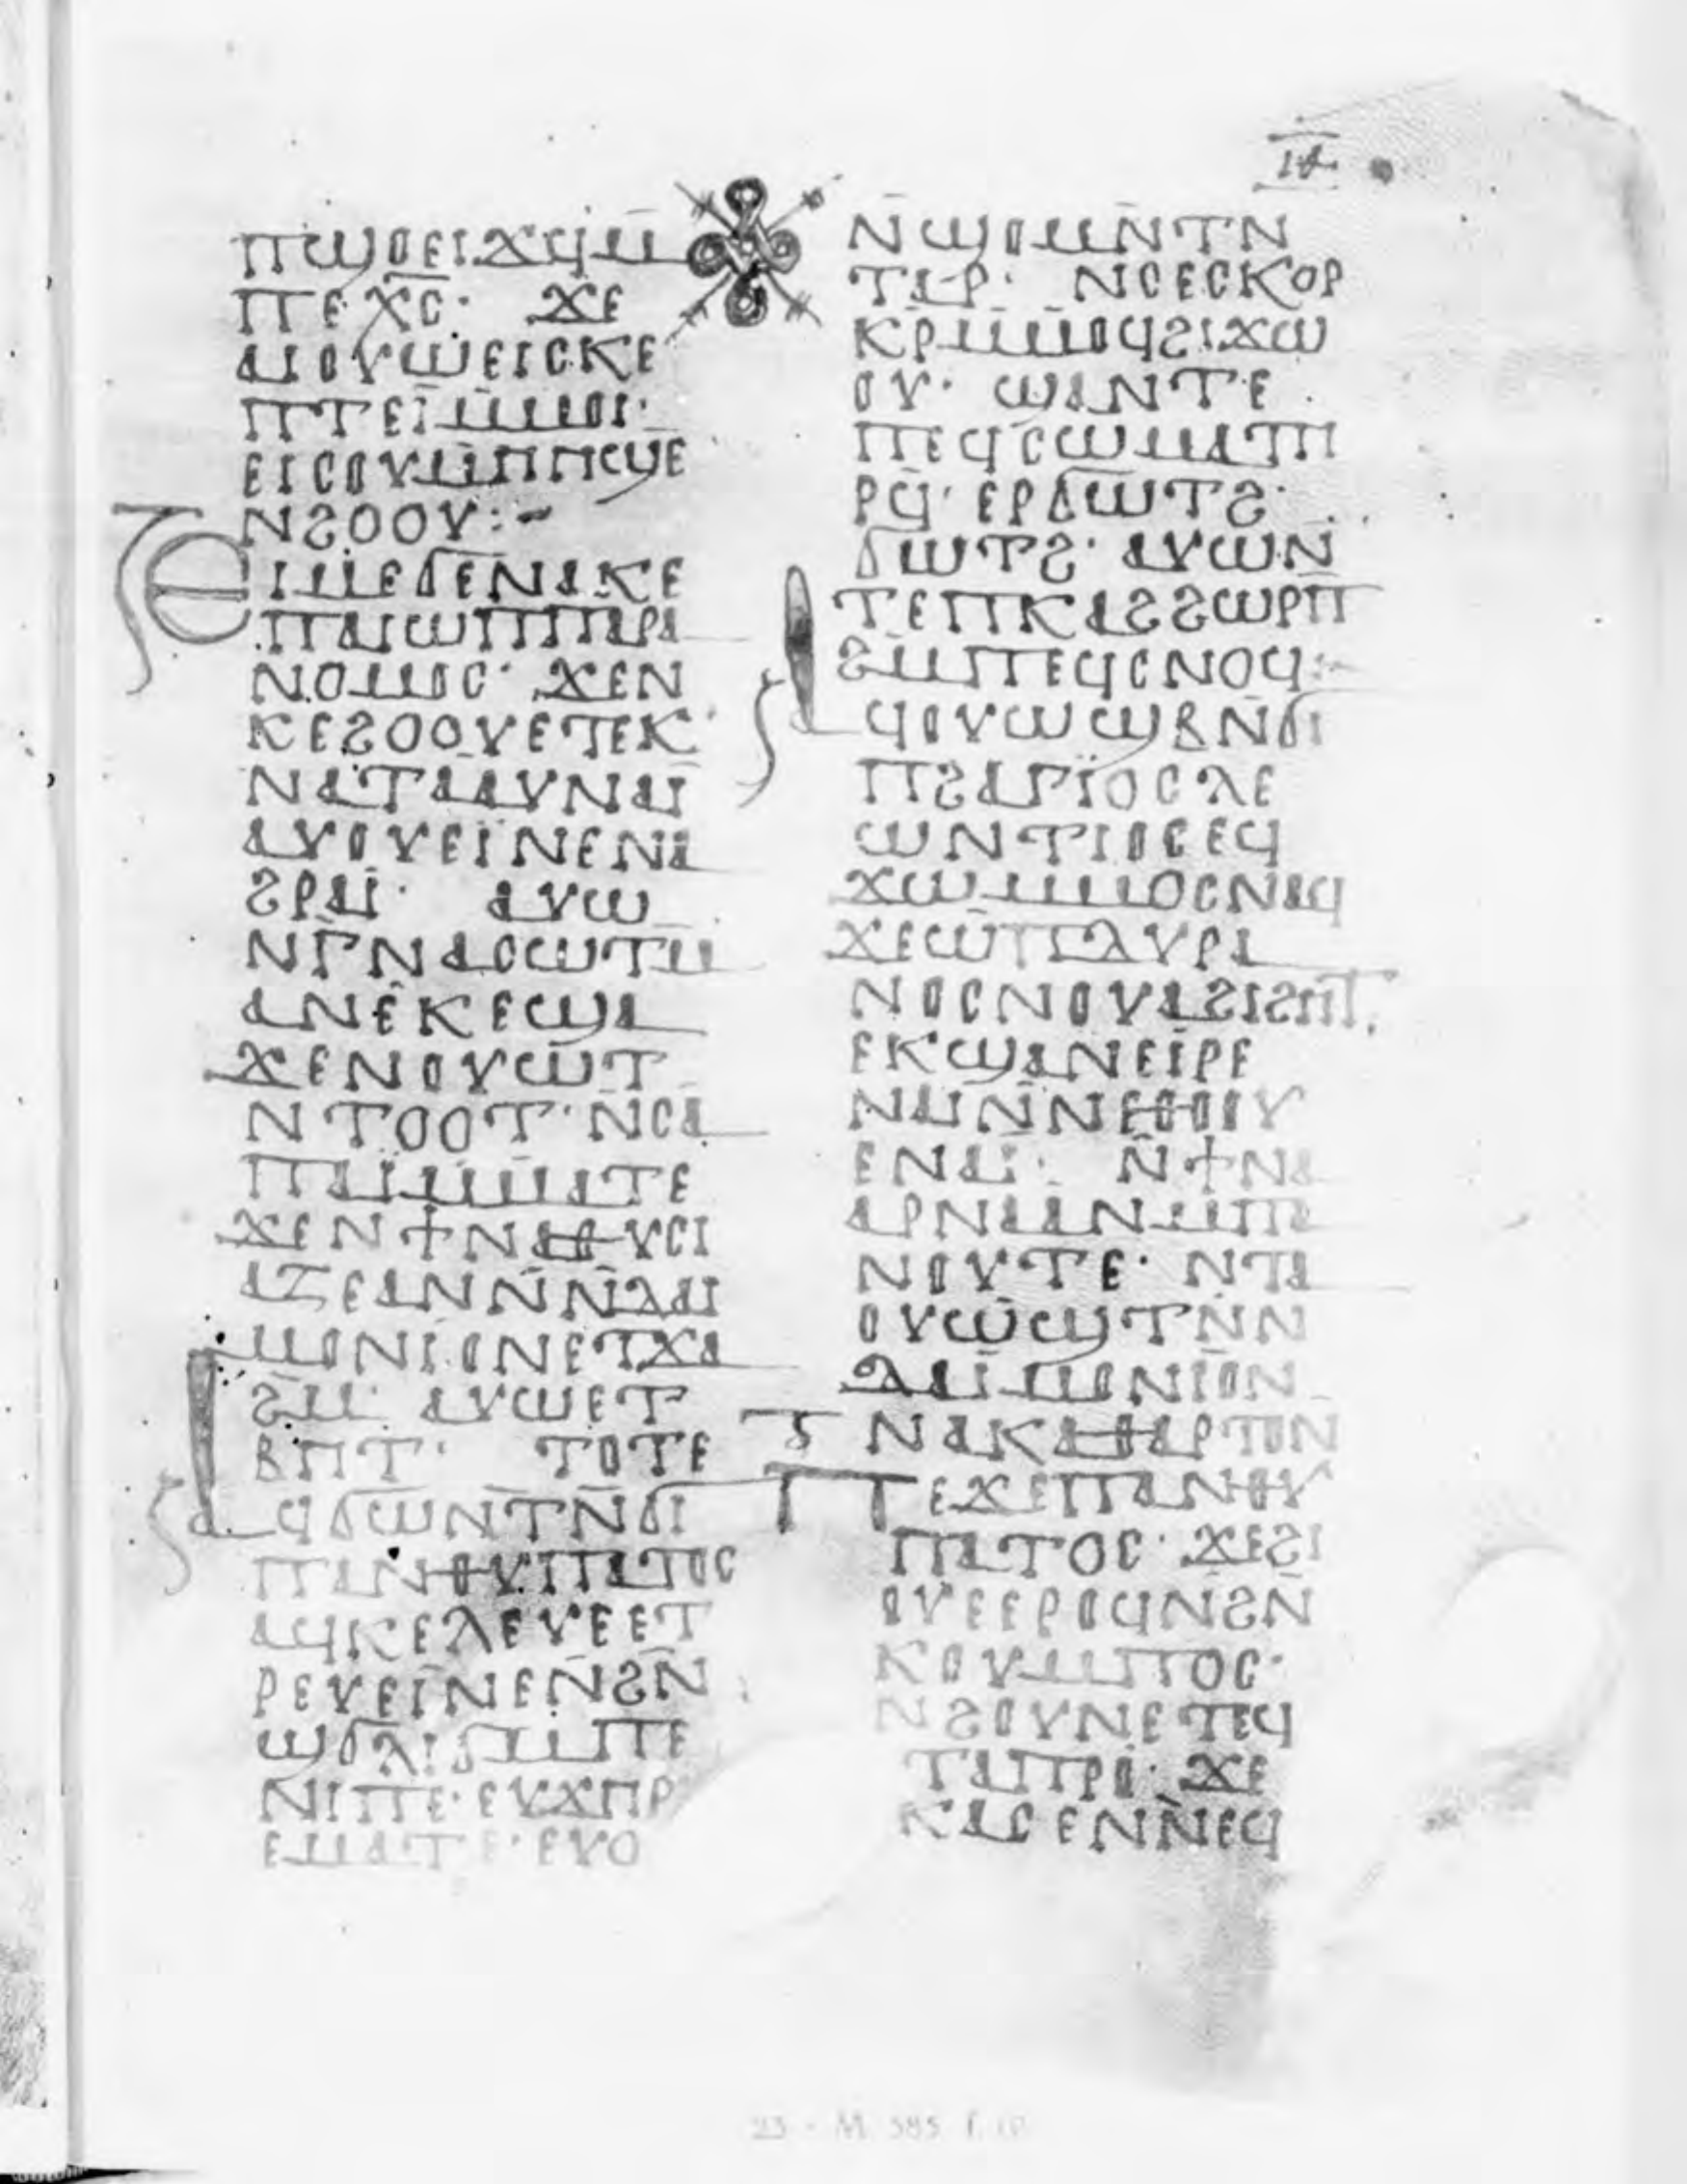 ⲓⲑ
ⲡϣⲟⲉⲓϫϥⲙ
ⲡⲉⲭⲥ· ϫⲉ
ⲁⲓⲟⲩⲱⲉⲓⲥⲕⲉ
ⲡⲧⲉⲓ̈ⲙ̄ⲙⲟⲓ·
ⲉⲓⲥⲟⲩⲙⲏⲏϣⲉ
ⲛϩⲟⲟⲩ:-
ⲉⲓⲙⲉϭⲉⲛⲁⲕⲉ
ⲡⲁⲓⲱⲡⲡⲁⲣⲁ
ⲛⲟⲙⲟⲥ· ϫⲉⲛ
ⲕⲉϩⲟⲟⲩⲉⲧⲉⲕ
ⲛⲁⲧⲁⲁⲩⲛⲁⲓ̈
ⲁⲩⲟⲩⲉⲓⲛⲉⲛⲁ
ϩⲣⲁⲓ̈· ⲁⲩⲱ
ⲛⲅ̄ⲛⲁⲥⲱⲧⲙ
ⲁⲛⲉⲕⲉϣⲁ
ϫⲉⲛⲟⲩⲱⲧ
ⲛⲧⲟⲟⲧ· ⲛ̄ⲥⲁ
ⲡⲁⲓ̈ⲙ̄ⲙⲁⲧⲉ
ϫⲉⲛϯⲛⲁⲑⲩⲥⲓ
ⲁⲍⲉⲁⲛⲛ̄ⲛ̄ⲇⲁⲓ
ⲙⲟⲛⲓⲟⲛⲉⲧϫⲁ
ϩⲙ̄· ⲁⲩⲱⲉⲧ
ⲃⲏⲧ· ⲧⲟⲧⲉ
ⲁϥϭⲱⲛⲧⲛ̄ϭⲓ
ⲡⲁⲛⲑⲩⲡⲁⲧⲟⲥ
ⲁϥⲕⲉⲗⲉⲩⲉⲉⲧ
ⲣⲉⲩⲉⲓⲛⲉⲛ̄ϩⲛ̄
ϣⲟⲗⲓϭⲙ̄ⲡⲉ
ⲛⲓⲡⲉ· ⲉⲩϫⲏⲣ
ⲉⲙⲁⲧⲉ· ⲉⲩⲟ
ⲛ̄ϣⲟⲙⲛ̄ⲧⲛ
ⲧⲁⲣ· ⲛⲥⲉⲥⲕⲟⲣ
ⲕⲣ̄ⲙ̄ⲙⲟϥϩⲓϫⲱ
ⲟⲩ· ϣⲁⲛⲧⲉ
ⲡⲉϥⲥⲱⲙⲁⲧⲏ
ⲣϥ̄· ⲉⲣϭⲱⲧϩ·
ϭⲱⲧϩ· ⲁⲩⲱⲛ
ⲧⲉⲡⲕⲁϩϩⲱⲣⲡ̄
ϩⲙ̄ⲡⲉϥⲥⲛⲟϥ:-
ⲁϥⲟⲩⲱϣⲃⲛ̄ϭⲓ
ⲡϩⲁⲅⲓⲟⲥⲗⲉ
ⲱⲛⲧⲓⲟⲥⲉϥ
ϫⲱⲙ̄ⲙⲟⲥⲛⲁϥ
ϫⲉⲱⲡⲧⲩⲣⲁ
ⲛⲟⲥⲛⲟⲩⲁϩⲓϩⲏⲧ,
ⲉⲕϣⲁⲛⲉⲓⲣⲉ
ⲛⲁⲓⲛ̄ⲛⲉⲑⲟⲟⲩ
ⲉⲛⲁⲓ̈· ⲛ̄ϯⲛⲁ
ⲁⲣⲛⲁⲁⲛⲙ̄ⲡⲁ
ⲛⲟⲩⲧⲉ· ⲛⲧⲁ
ⲟⲩⲱϣⲧⲛ̄ⲛ
ⲇⲁⲓ̈ⲙⲟⲛⲓⲟⲛ
ⲛⲁⲕⲁⲑⲁⲣⲧⲟⲛ
ⲡⲉϫⲉⲡⲁⲛⲑⲩ
ⲡⲁⲧⲟⲥ· ϫⲉϩⲓ
ⲟⲩⲉⲉⲣⲟϥⲛ̄ϩⲛ̄
ⲕⲟⲩⲙⲡⲟⲥ·
ⲛϩⲟⲩⲛⲉⲧⲉϥ
ⲧⲁⲡⲣⲟ· ϫⲉ
ⲕⲁⲥⲉⲛⲛ̄ⲉϥ